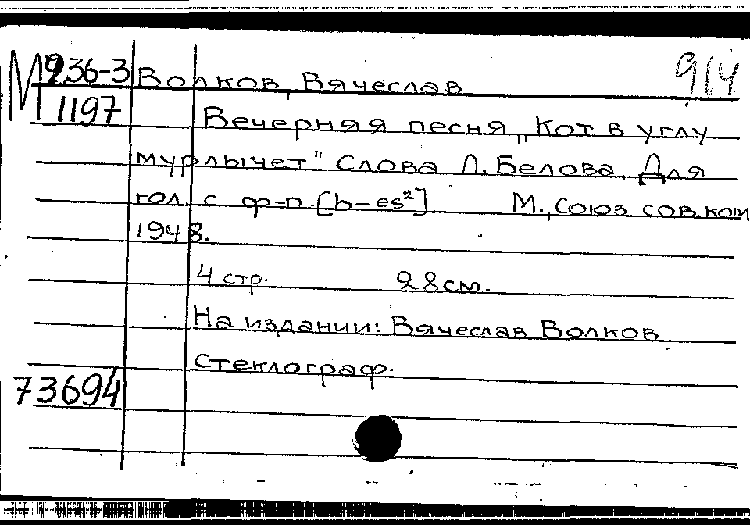 М 936-3 Волков, Вячеслав 914
1197 Вечерняя песня „Кот в углу
мурлычет" Слова Л. Белова. Для
гол. с ф-п [b-es²] М., Союз сов. комп
1948.
4 стр. 28 см.
На издании: Вячеслав Волков
Стеклограф.
73694